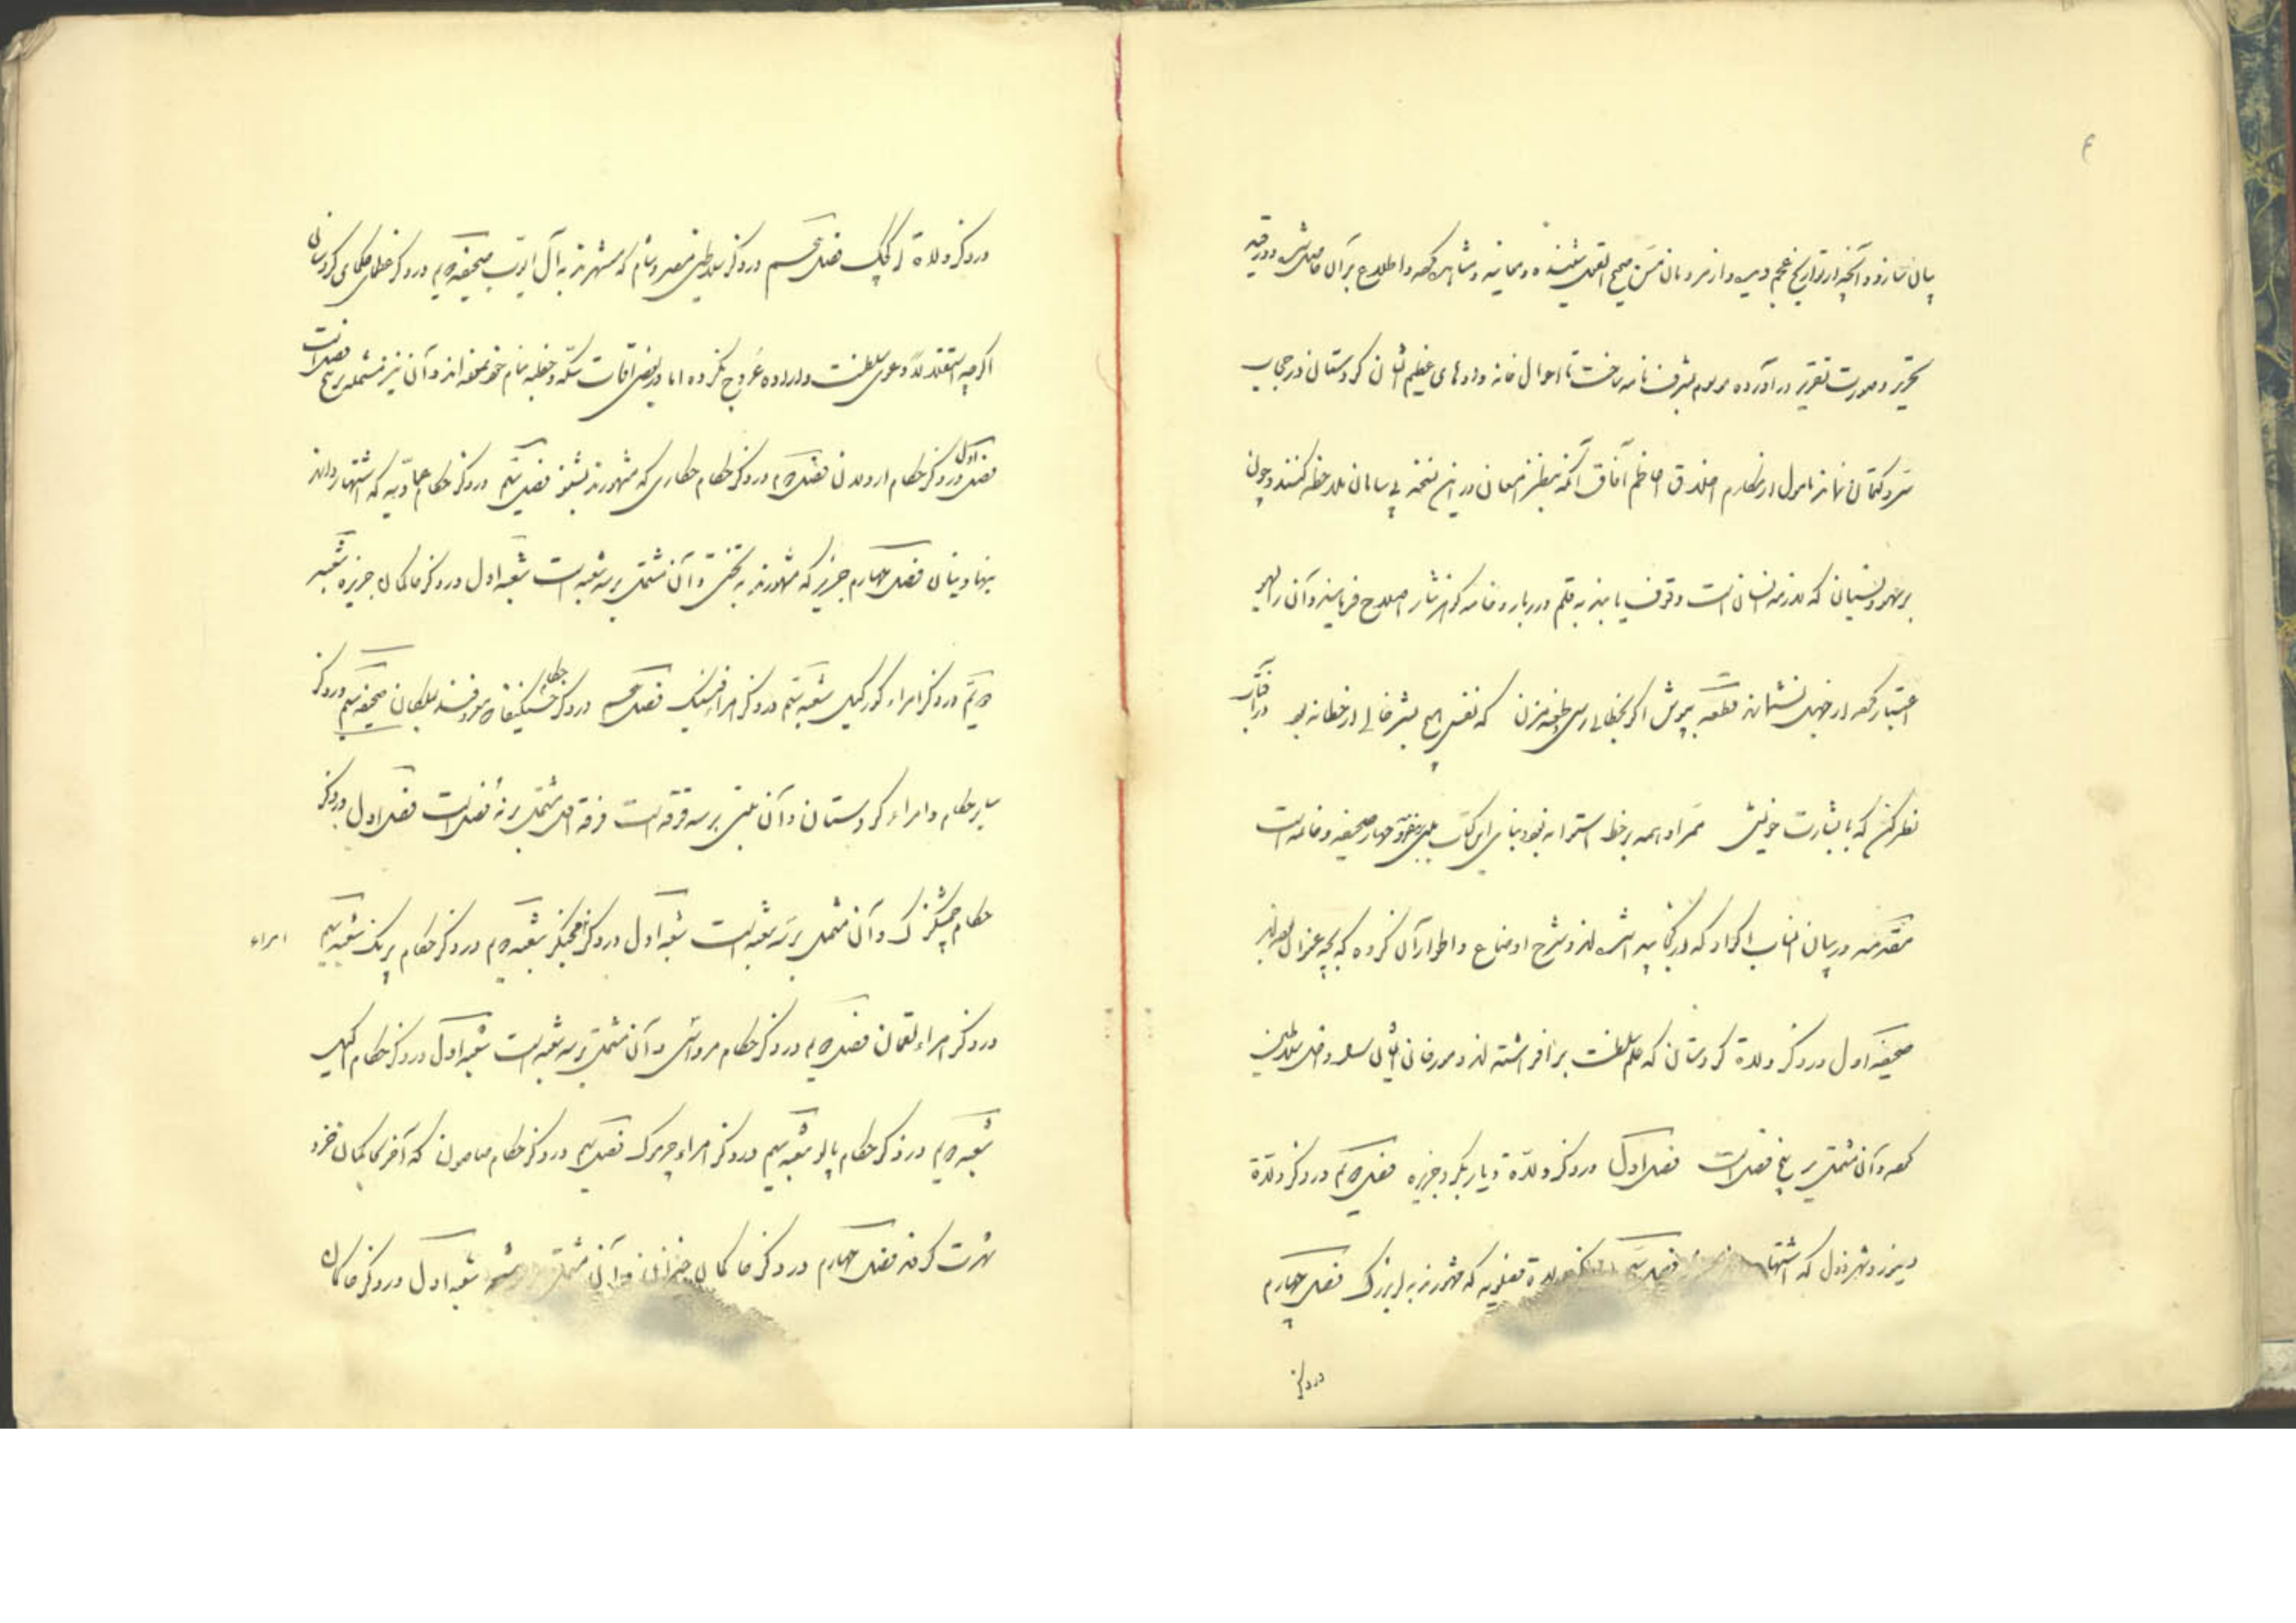 ۴
بیان سازد و آنچه از تواریخ عجم دیده و از مردمان مسن صحیح القول شنیده و معاینه و مشاهده کرده و اطلاع بر آن حاصل شده در قید
تحریر و صورت تقریر در آورده موسوم بشرف نامه ساخت تا احوال خانه وادهای عظیم الشان کردستان در حجاب
ستر و کتمان نماند مامول از مکارم اخلاق اعاظم آفاق آنکه بنظر امعان در این نسخه بی سامان ملاحظه کنند و چون
بر سهو و نسیان که لازمه انسان است وقوف یابند به قلم دربار و خامه گوهر نثار اصلاح فرمایند و آن را سهو
اعتبار کرده از جهل نشمارند قطعه بپوش اگر بخطائی رسی و طعنه مزن که نفس هیچ بشر خالی از خطا نه بود در آفتاب
نظر کن که با بشارت خویش ممر او همه بر خط استوا نه بود بنای این کتاب مبنی بر مقدمه و چهار صحیفه و خاتمه است
مقدمه در بیان انساب اکراد که از کجا پیدا شده اند و شرح اوضاع و اطوار آن گروه که بچه عنوان بوده اند
صحیفه اول در ذکر ولاة کردستان که علم سلطنت بر افراشته اند و مورخان ایشان را داخل سلاطین
کرده و آن مشتمل بر پنج فصل است فصل اول در ذکر ولاة دیاربکر و جزیره فصل دویم در ذکر ولاة
دینور و شهرزول که اشتهار فصل سیم ولاة فضلویه که مشهورند به لر بزرگ فصل چهارم
در ذکر
در ذکر ولاة لر کوچک فصل پنجم در ذکر سلاطین مصر و شام که مشهورند به آل ایوب صحیفه دویم در ذکر عظمای حکمای کردستان
اگرچه استقلالا دعوی سلطنت و اراده عروج نکرده اما در بعض اوقات سکه و خطبه بنام خود نموده اند و آن نیز مشتمل بر پنج فصل است
فصل اول در ذکر حکام اردلان فصل دویم در ذکر حکام حکاری که مشهورند بشنبو فصل سیم در ذکر حکام عمادیه که اشتهار دارند
ببهادینان فصل چهارم جزیره که مشهورند به بختی و آن مشتمل بر سه شعبه است شعبه اول در ذکر حاکمان جزیره شعبه
دویم در ذکر امراء گورکیل شعبه سیم در ذکر امراء فنیک فصل پنجم در ذکر حکام حسنکیفا معروفند بملکان صحیفه سیم در ذکر
سایر حکام و امراء کردستان و آن مبنی بر سه فرقه است فرقه اول مشتمل بر نه فصل است فصل اول در ذکر
حکام چمشکزک و آن مشتمل بر سه شعبه است شعبه اول در ذکر مجنکرد شعبه دویم در ذکر حکام پرتک شعبه سیم
امراء
در ذکر امراء سقمان فصل دویم در ذکر حکام مرداسی و آن مشتمل بر سه شعبه است شعبه اول در ذکر حکام اکیل
شعبه دویم در ذکر حکام پالو شعبه سیم در ذکر امراء چرموک فصل سیم در ذکر حکام صاصون که آخر بحاکمان حزو
شهرت گرفته فصل چهارم در ذکر حاکمان خیزان و آن مشتمل شعبه اول در ذکر حاکمان